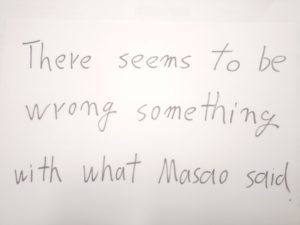 There seems to be
wrong something
with what Masao said